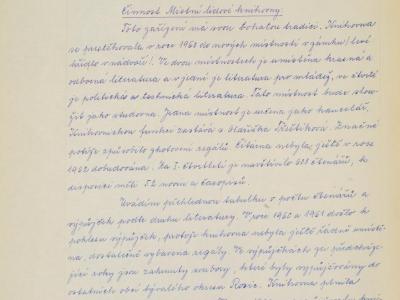 Činnost Místní lidové knihovny:
Toto zařízení má svou bohatou tradici. Knihovna
se přestěhovala v roce 1961 do nových místností v zámku / levé
křídlo v nádvoří /. Ve dvou místnostech je umístěna krásná a
odborná literatura a v jedné je literatura pro mládež, ve čtvrté
je politická a technická literatura. Tato místnost bude slou-
žit jako studovna. Jedna místnost je určena jako kancelář.
Knihovnickou funkci zastává s. Vlastička
potíže způsobilo zhotovení regálů. Čítárna nebyla ještě v roce
1962 dobudována. Za I. čtvrtletí ji navštívilo 623 čtenářů, k
disposici měli 52 novin a časopisů.
Uvádím přehlednou tabulku o počtu čtenářů a
výpůjček podle druhu literatury. V roce 1960 a 1961 došlo k
poklesu výpůjček, protože knihovna nebyla ještě řádně umístě-
na, dostatečně vybavena regály. Ve výpůjčkách za předcháze-
jící roky jsou zahrnuty soubory, které byly vypůjčovány do
ostatních obcí bývalého okresu Rosice. Knihovna plnila